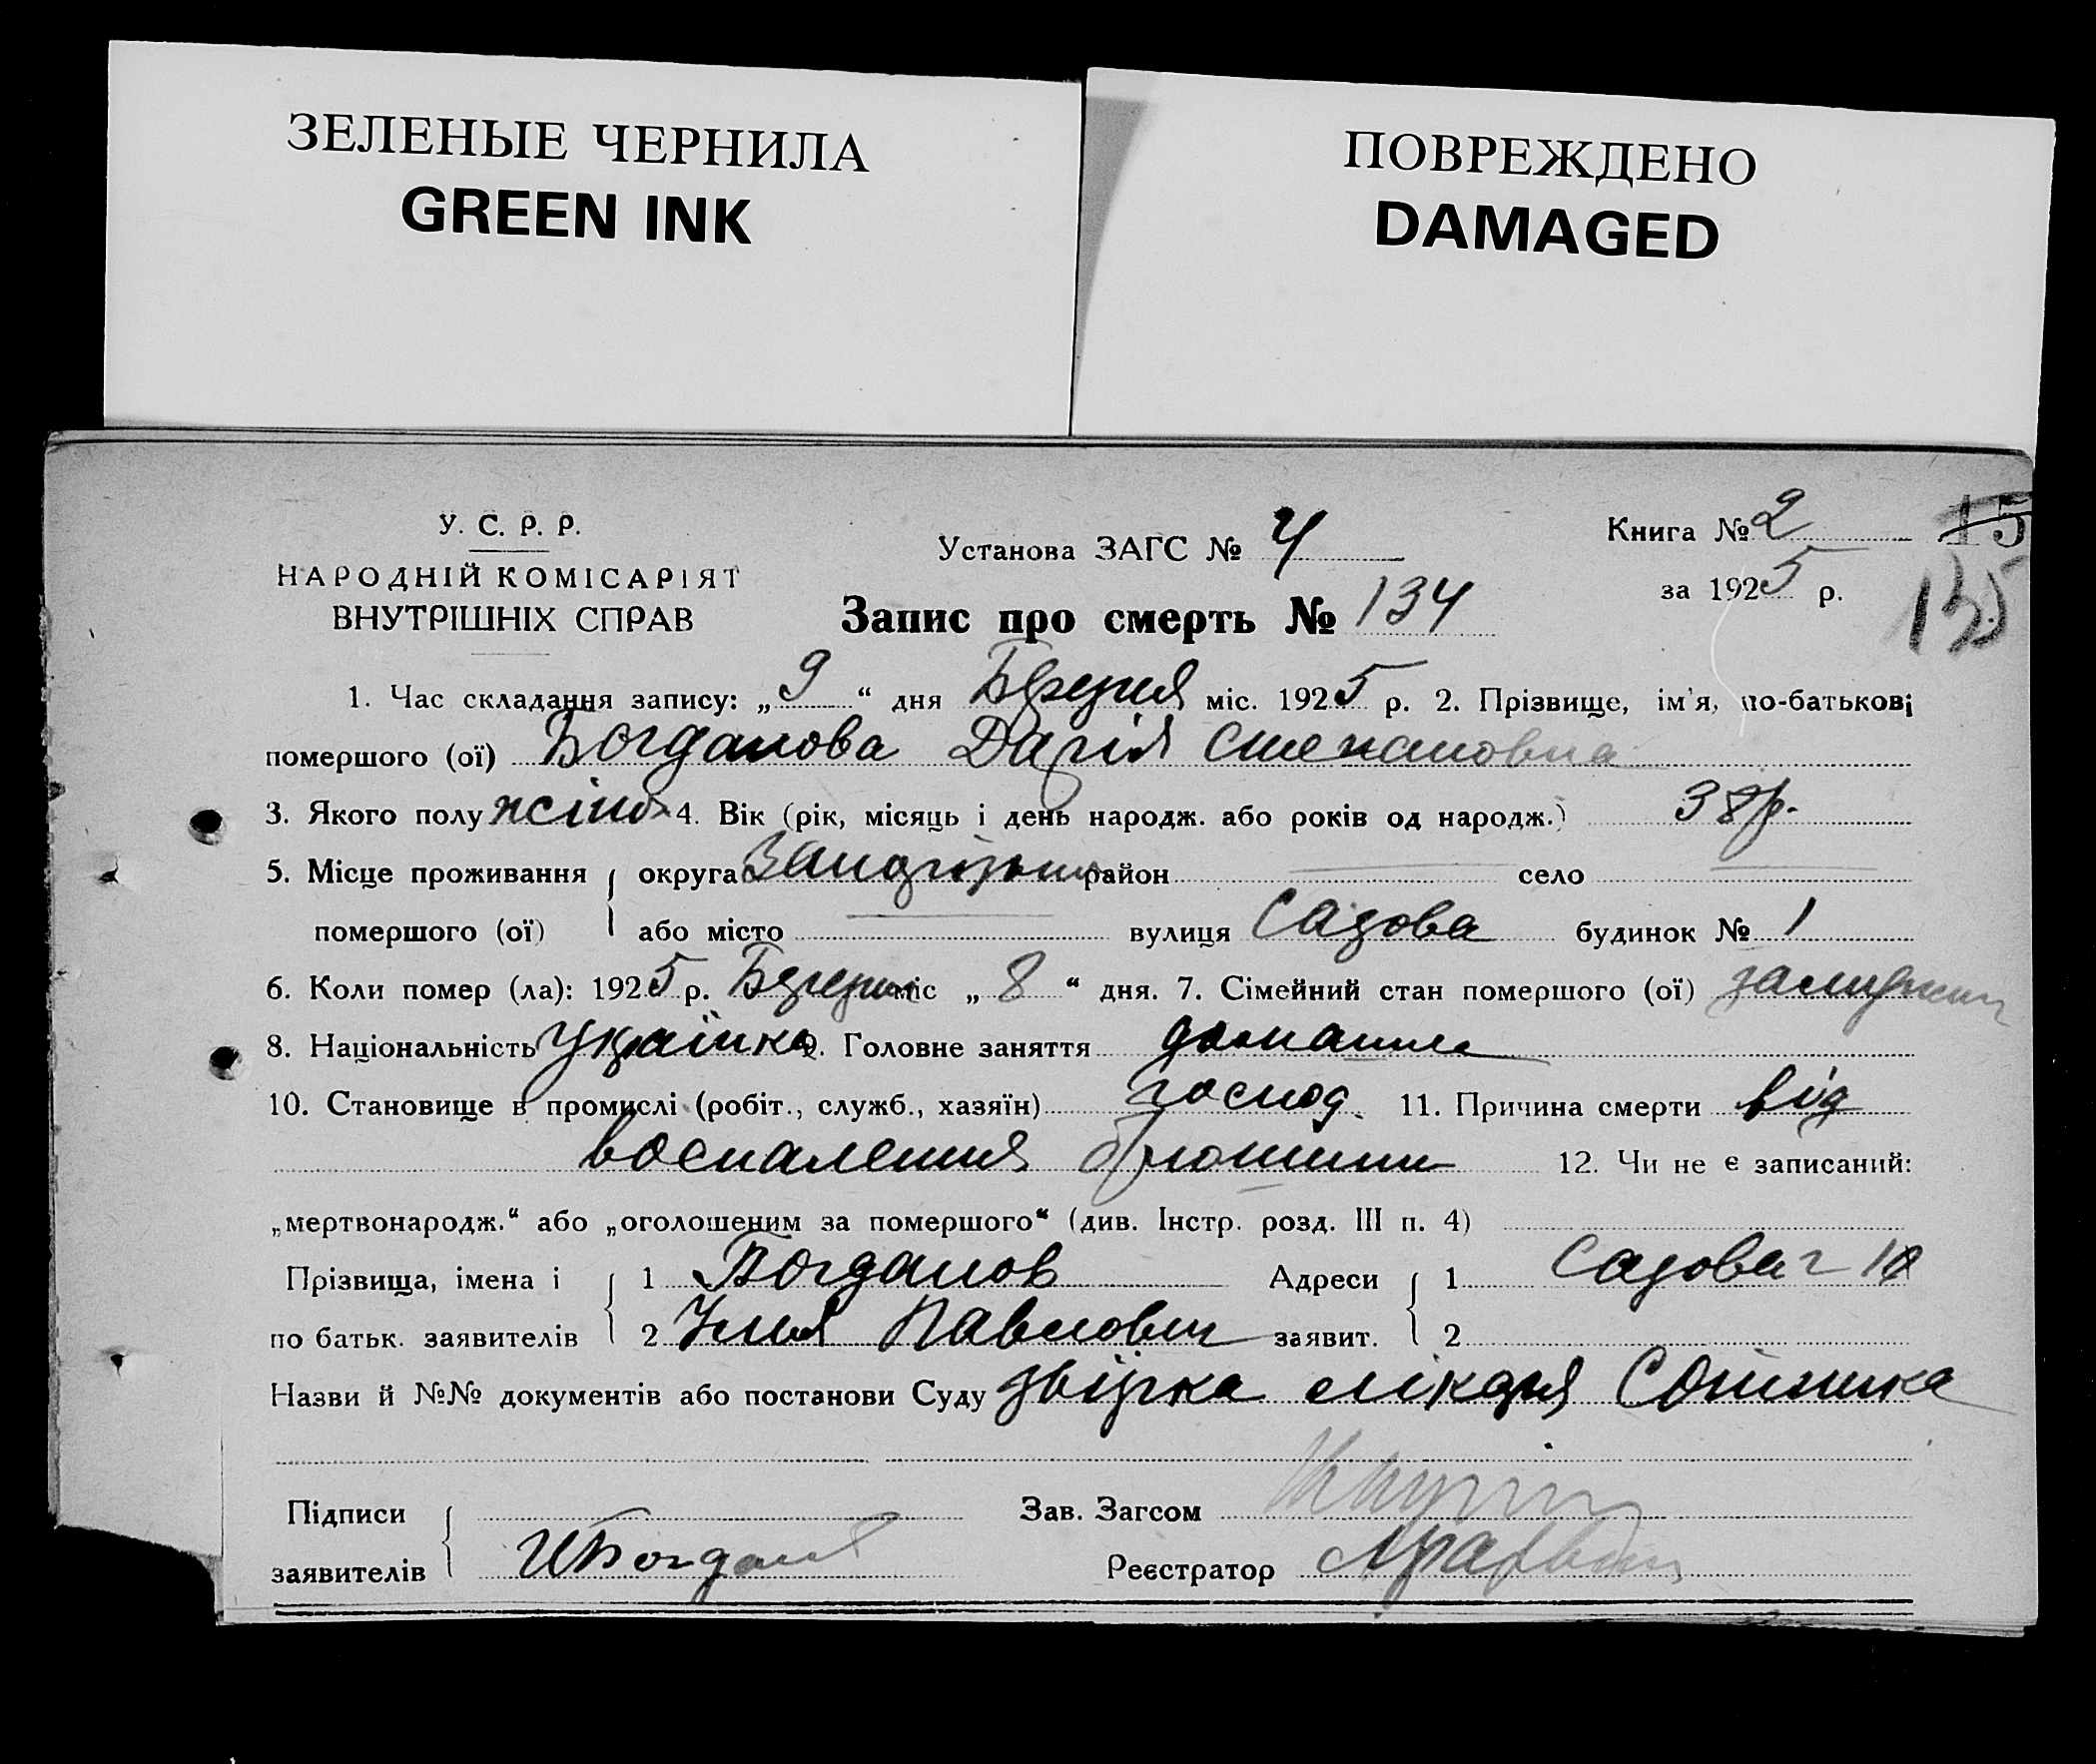 ЗЕЛЕНЫЕ ЧЕРНИЛА
GREEN INK
ПОВРЕЖДЕНО
DAMAGED
У. С. Р. Р.
НАРОДНІЙ КОМІСАРІЯТ
ВНУТРІШНІХ СПРАВ
Установа ЗАГС № 4
Книга № 2
за 1925 р.
15
135
Запис про смерть № 134
1. Час складання запису: „9“ дня Березня міс. 1925 р. 2. Прізвище, ім'я, по-батькові
помершого (ої) Богданова Дарія Степановна
3. Якого полу жіноч 4. Вік (рік, місяць і день народж. або років од народж.) 38 р.
5. Місце проживання округа Запоріжжя район село
помершого (ої) або місто вулиця Садова будинок № 1
6. Коли помер (ла): 1925 р. Березня міс „8“ дня. 7. Сімейний стан помершого (ої) замужня
8. Національність Українка 9. Головне заняття домашнє
10. Становище в промислі (робіт., служб., хазяїн) господ. 11. Причина смерти від
воспалення брюшини 12. Чи не є записаний:
„мертвонародж.“ або „оголошеним за помершого“ (див. Інстр. розд. III п. 4)
Прізвища, імена і 1 Богданов Адреси 1 Садова
по батьк. заявителів 2 Ілья Павлович заявит. 2
Назви й №№ документів або постанови Суду довідка лікаря
Підписи Зав. Загсом
заявителів ИБогданов Реєстратор